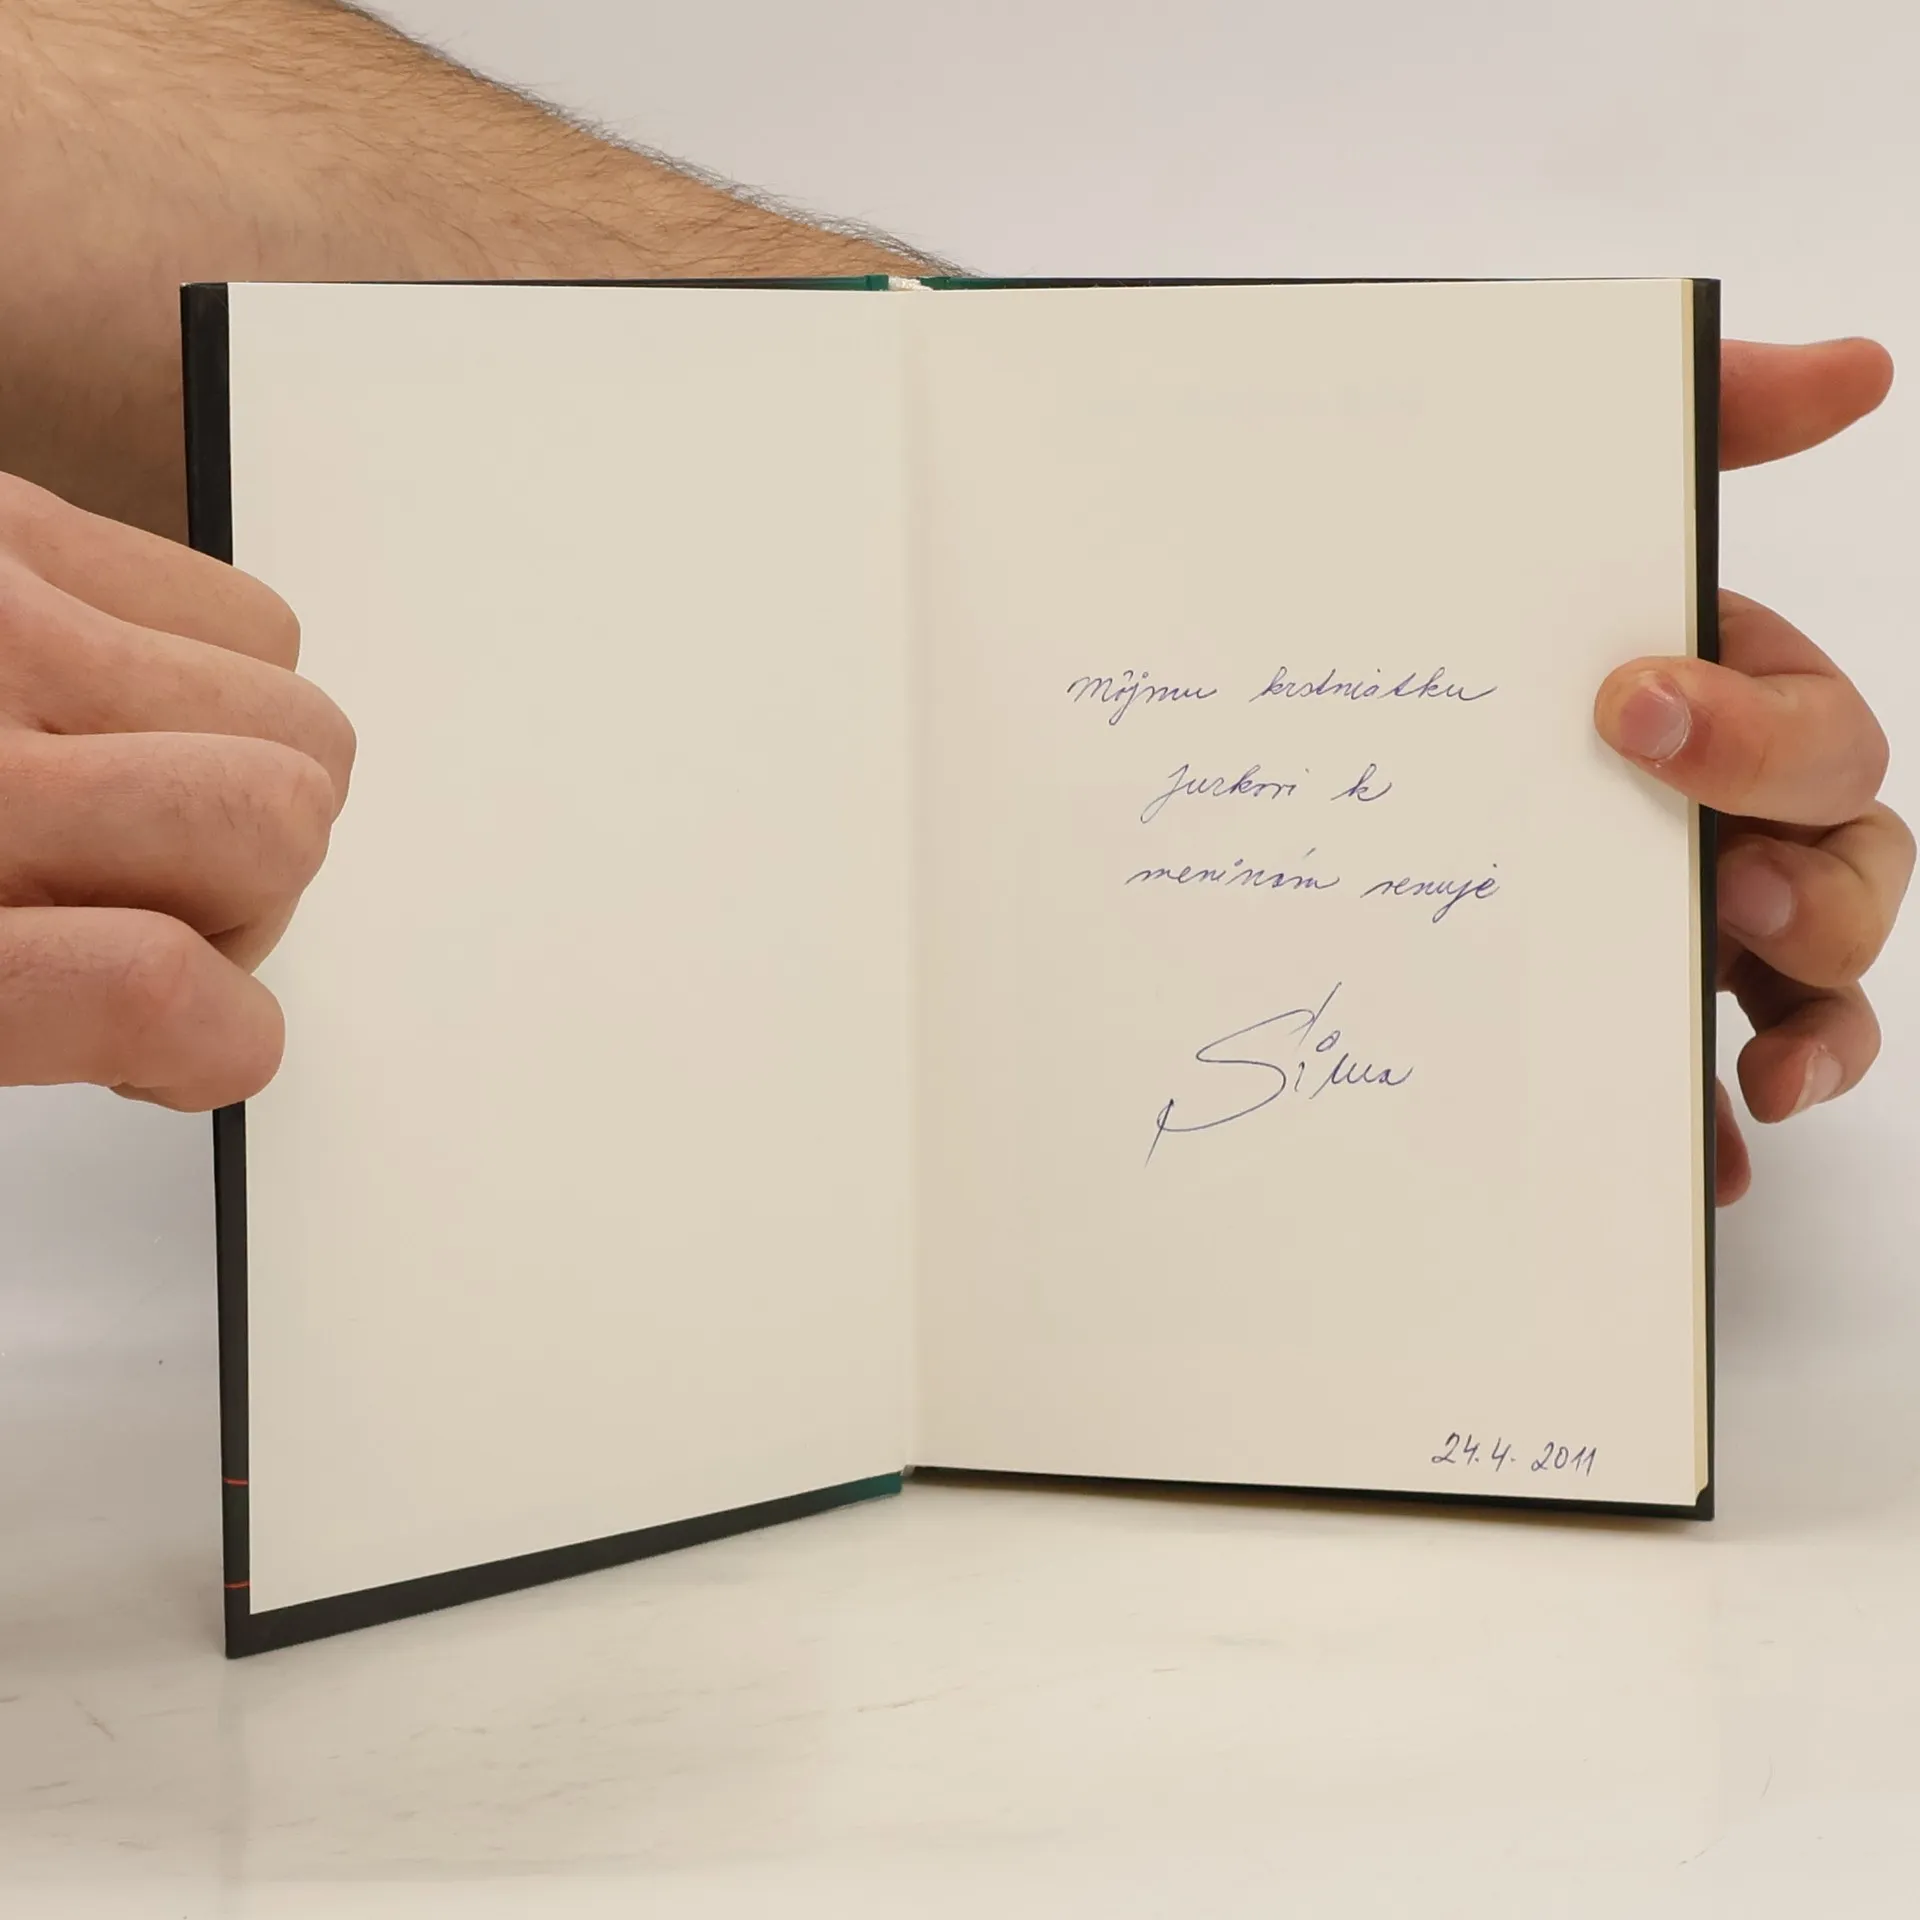 Môjmu krstniatku
Jurkovi k
meninám venuje
Sima
24.4. 2011